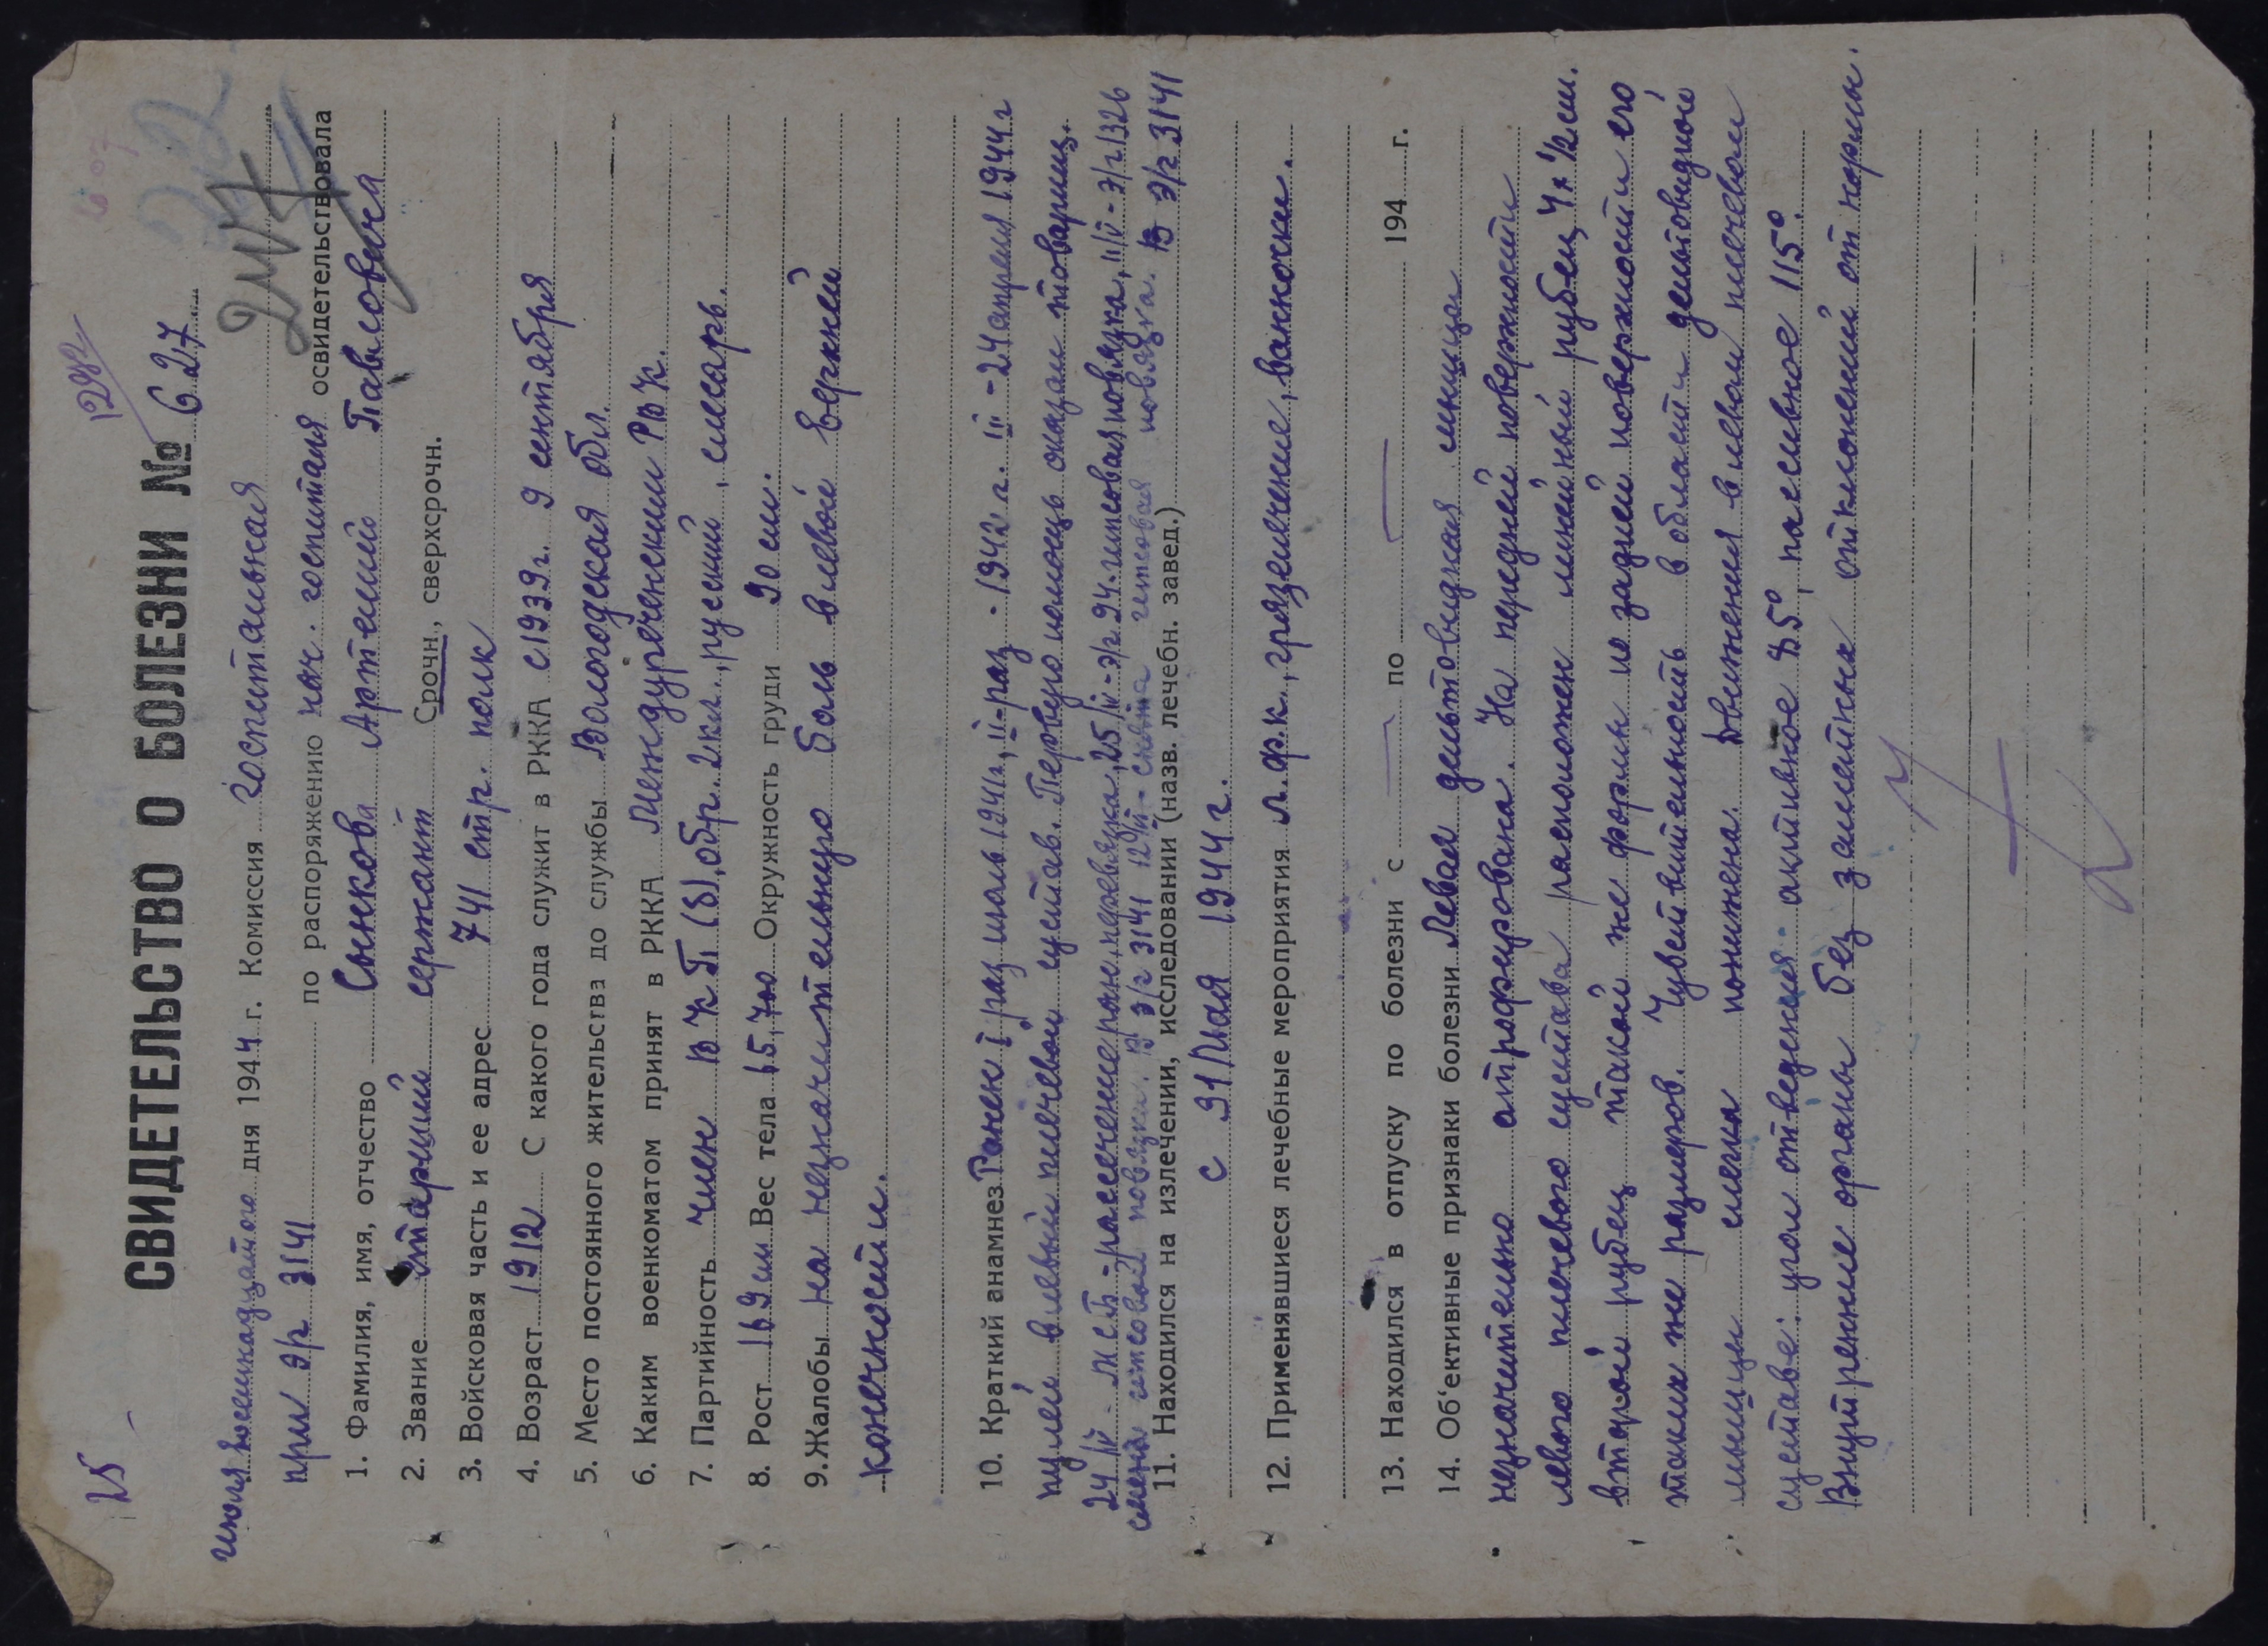 25
1292
СВИДЕТЕЛЬСТВО О БОЛЕЗНИ № 627
июля восемнадцатого дня 1944 г. Комиссия госпитальная
при э/г 3141 по распоряжению нач. госпиталя освидетельствовала
1. Фамилия, имя, отчество Сынкова Артемий Павловича
2. Звание старший сержант Срочн., сверхсрочн.
3. Войсковая часть и ее адрес 741 стр. полк
4. Возраст 1912 С какого года служит в РККА с 1939 г. 9 сентября
5. Место постоянного жительства до службы Вологодская обл.
6. Каким военкоматом принят в РККА Междуреченским РВК.
7. Партийность член ВКП(б), обр. 2 кл., русский, слесарь.
8. Рост 169 см Вес тела 65,700 Окружность груди 90 см.
9. Жалобы на незначительную боль в левой верхней
конечности.
10. Краткий анамнез Ранен I раз июль 1941 г., II-раз - 1942 г. III - 24 апреля 1944 г
пулей в левый плечевой сустав. Первую помощь оказал товарищ.
24/IV - МСБ - рассечение раны, перевязка, 25/IV - э/г 94. гипсовая повязка, 11/V - э/г 1326
смена гипсовой повязки. В э/г 3141 12/VI - снята гипсовая повязка. В э/г 3141
11. Находился на излечении, исследовании (назв. лечебн. завед.)
с 31 Мая 1944 г.
12. Применявшиеся лечебные мероприятия л.ф.к., грязелечение, ванночки.
13. Находился в отпуску по болезни с — по — 194 г.
14. Об'ективные признаки болезни Левая дельтовидная мышца
незначительно атрофирована. На передней поверхности
левого плечевого сустава расположен линейный рубец 4 х 1/2 см.
второй рубец такой же формы по задней поверхности его
таких же размеров. Чувствительность в области дельтовидной
мышцы слегка понижена. Движения в левом плечевом
суставе: угол отведения активное 85°, пассивное 115°.
Внутренние органы без заметных отклонений от нормы.